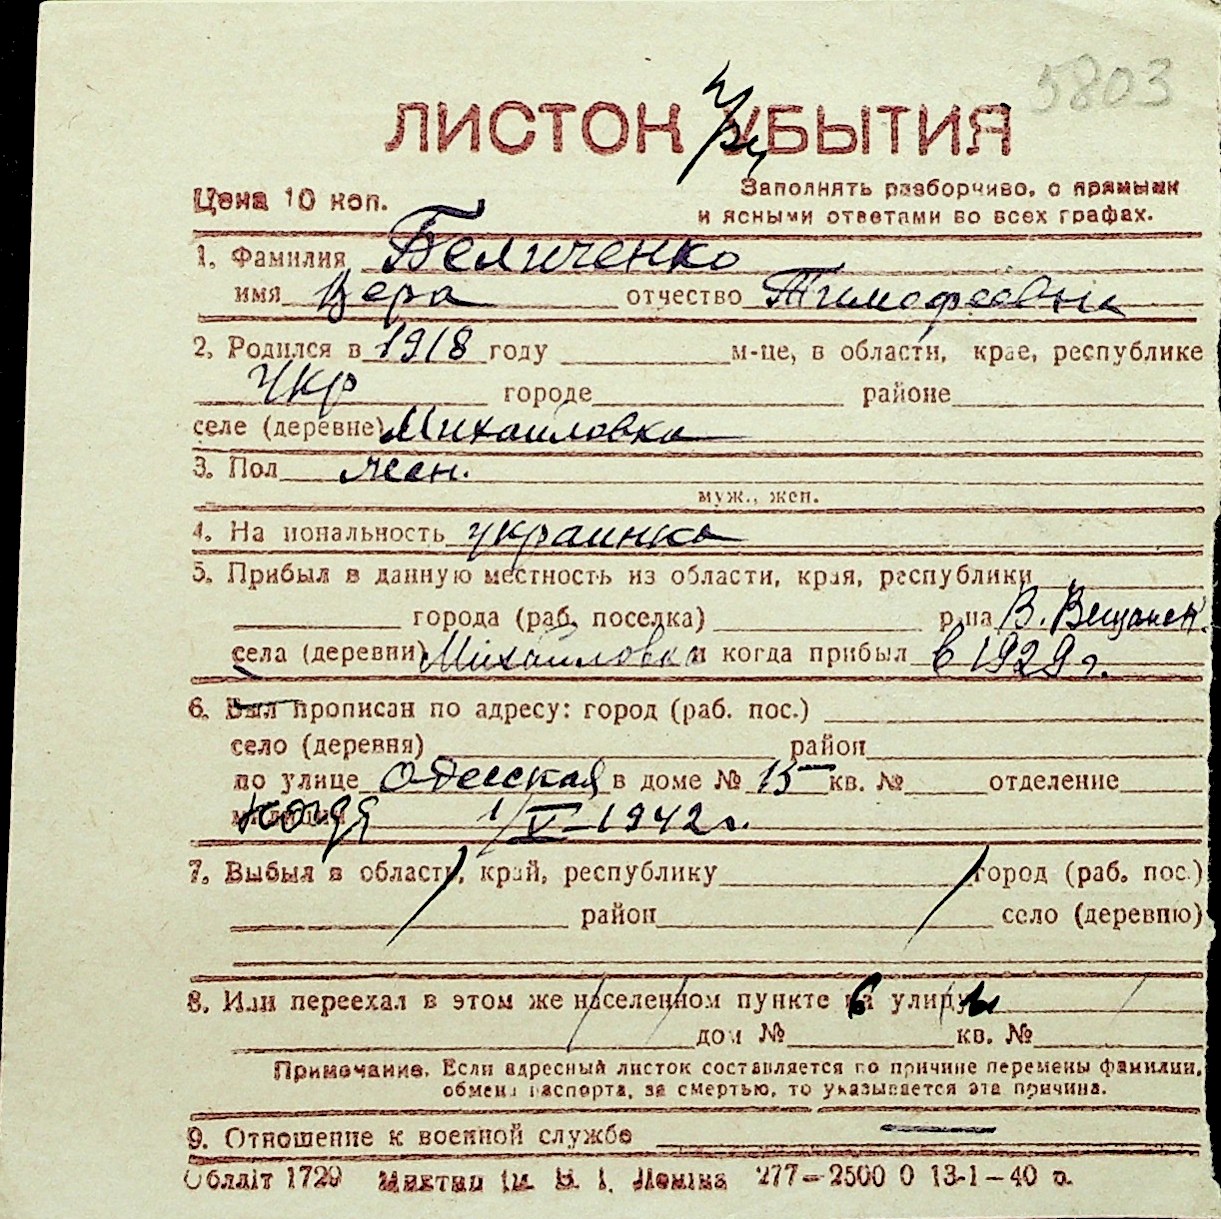 5803
ЛИСТОК УБЫТИЯ
При
Цена 10 коп.
Заполнять разборчиво, с прямыми
и ясными ответами во всех графах.
1. Фамилия Беличенко
имя Вера отчество Тимофеевна
2. Родился в 1918 году м-це, в области, крае, республике
Укр городе районе
селе (деревне) Михайловка
3. Пол жен.
муж., жен.
4. Национальность украинка
5. Прибыл в данную местность из области, края, республики
города (раб. поселка) р-на В.
села (деревни) Михайловка и когда прибыл в 1929 г.
6. Был прописан по адресу: город (раб. пос.)
село (деревня) район
по улице Одесская в доме № 15 кв. № отделение
когда 1/V-1942 г.
7. Выбыл в область, край, республику город (раб. пос.)
район село (деревню)
8. Или переехал в этом же населенном пункте на улицу
дом № кв. №
Примечание. Если адресный листок составляется по причине перемены фамилии,
обмена паспорта, за смертью, то указывается эта причина.
9. Отношение к военной службе —
Облліт 1729 ім. В. І. Леніна 277—2500 0 13-1—40 р.